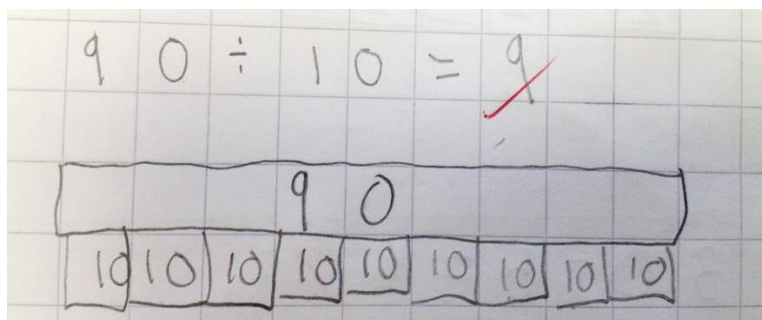 90 ÷ 10 = 9
90
10 10 10 10 10 10 10 10 10